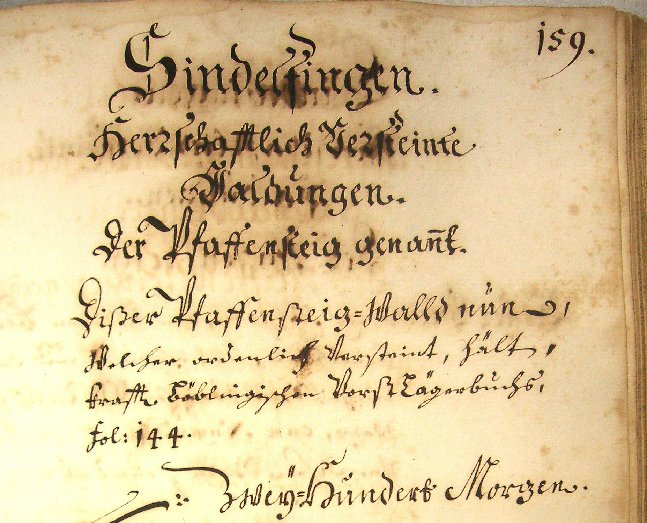 159.
Sindelfingen.
Herrschafftlich Versteinte
Waldungen.
Der Pfaffensteig genant.
Dißer Pfaffensteig-Walld nun,
Welcher ordenlich Versteint, hält,
krafft Böblingischen Vorst Lägerbuchs,
fol: 144.
Zwey-Hundert Morgen.